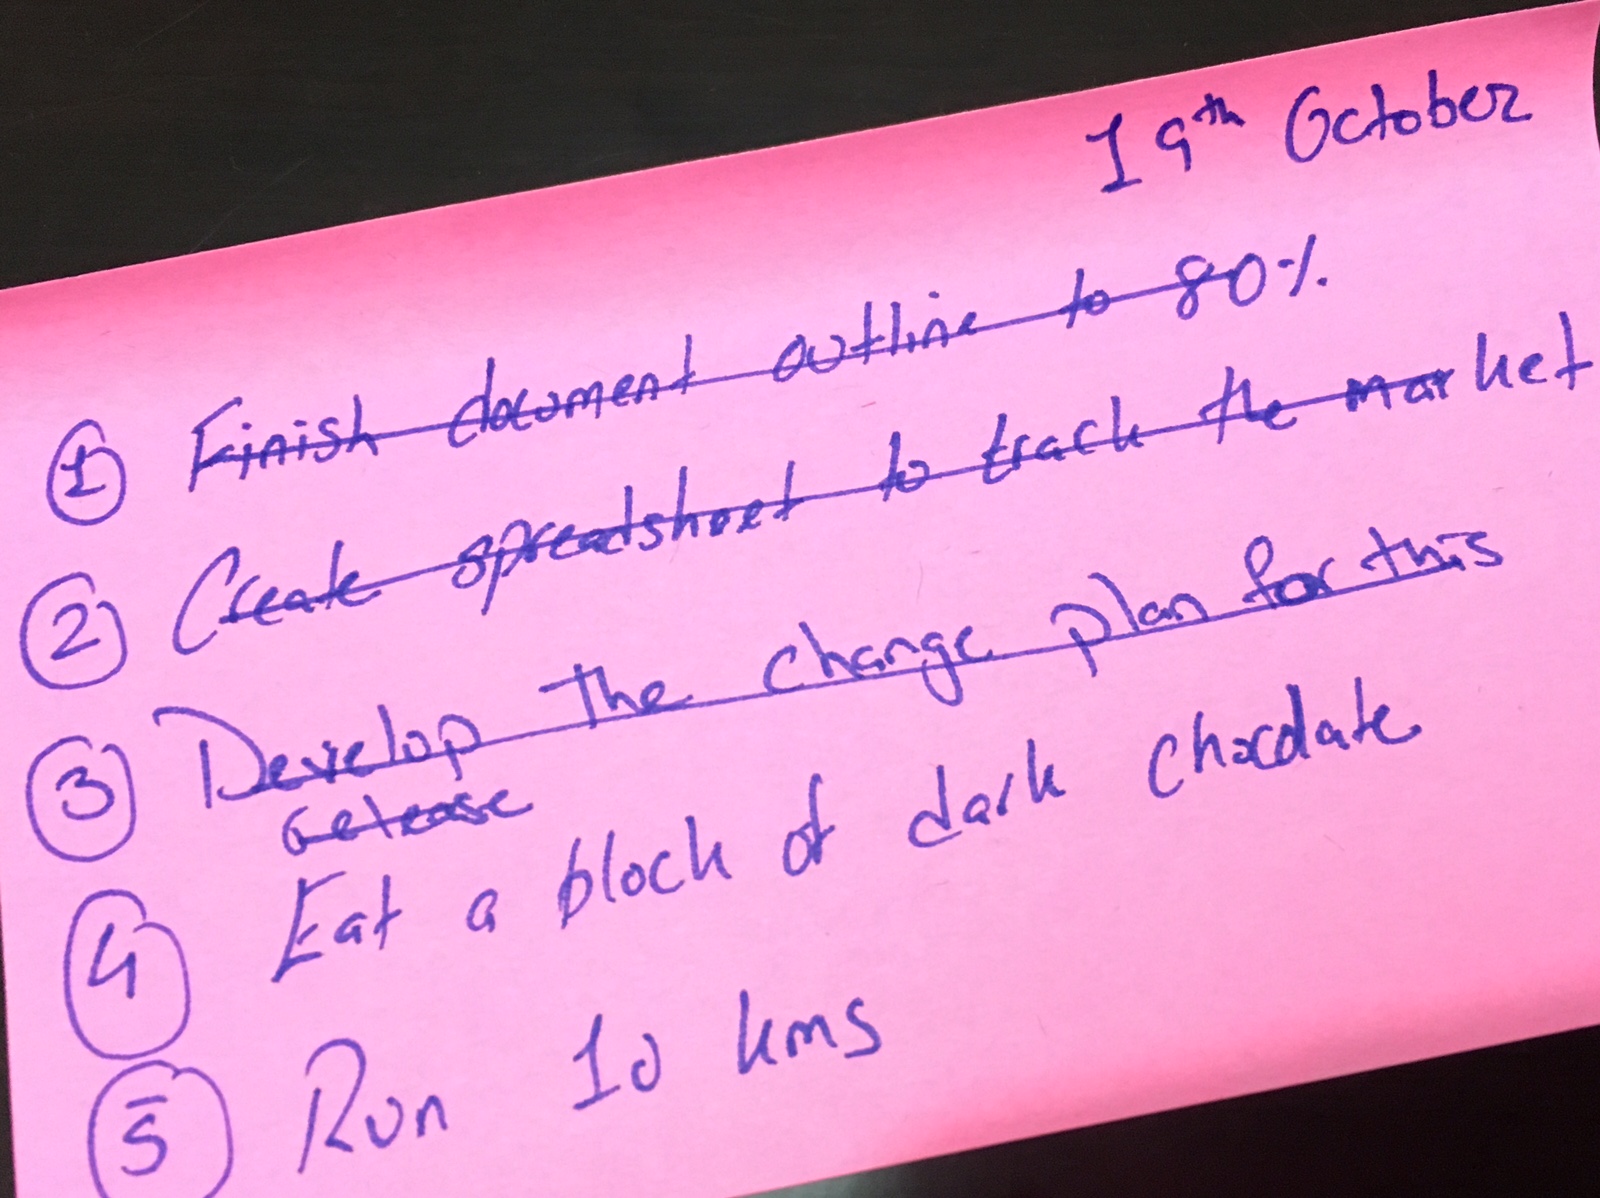 19th October
1 Finish document outline to 80%
2 Create spreadsheet to track the market
3 Develop the change plan for this
release
4 Eat a block of dark chocolate
5 Run 10 kms